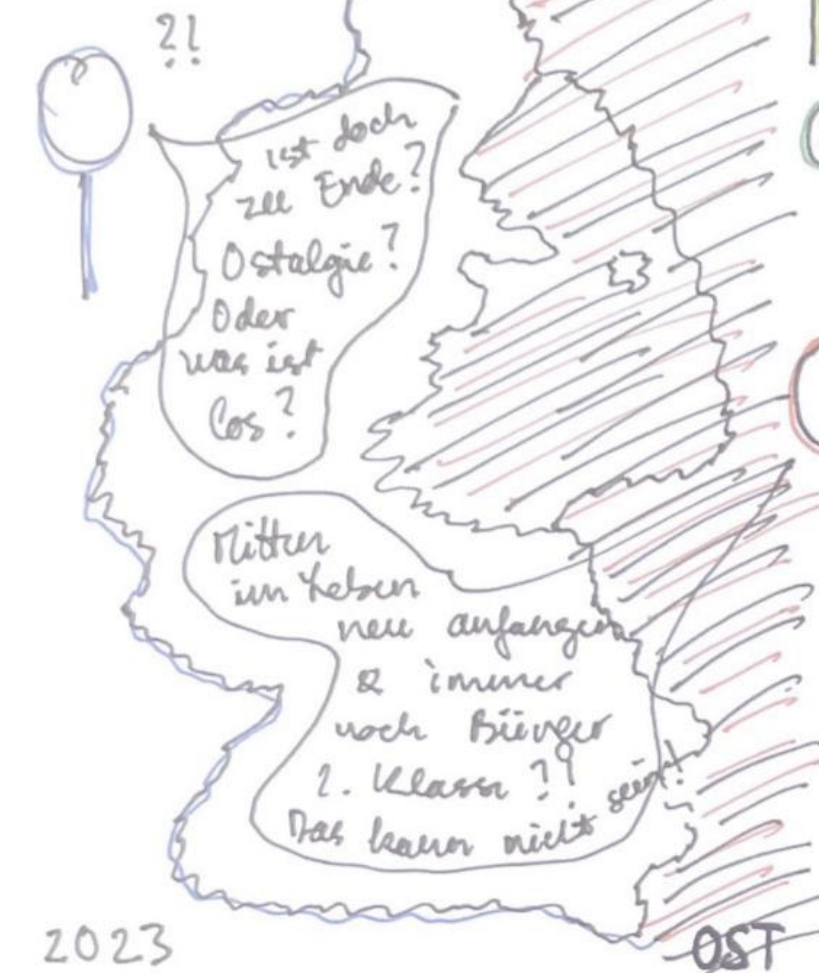 ?!
ist doch
zu Ende?
Ostalgie?
Oder
was ist
los?
Mitten
im Leben
neu anfangen
& immer
noch Bürger
2. Klasse?!
Das kann nicht sein!
2023
OST